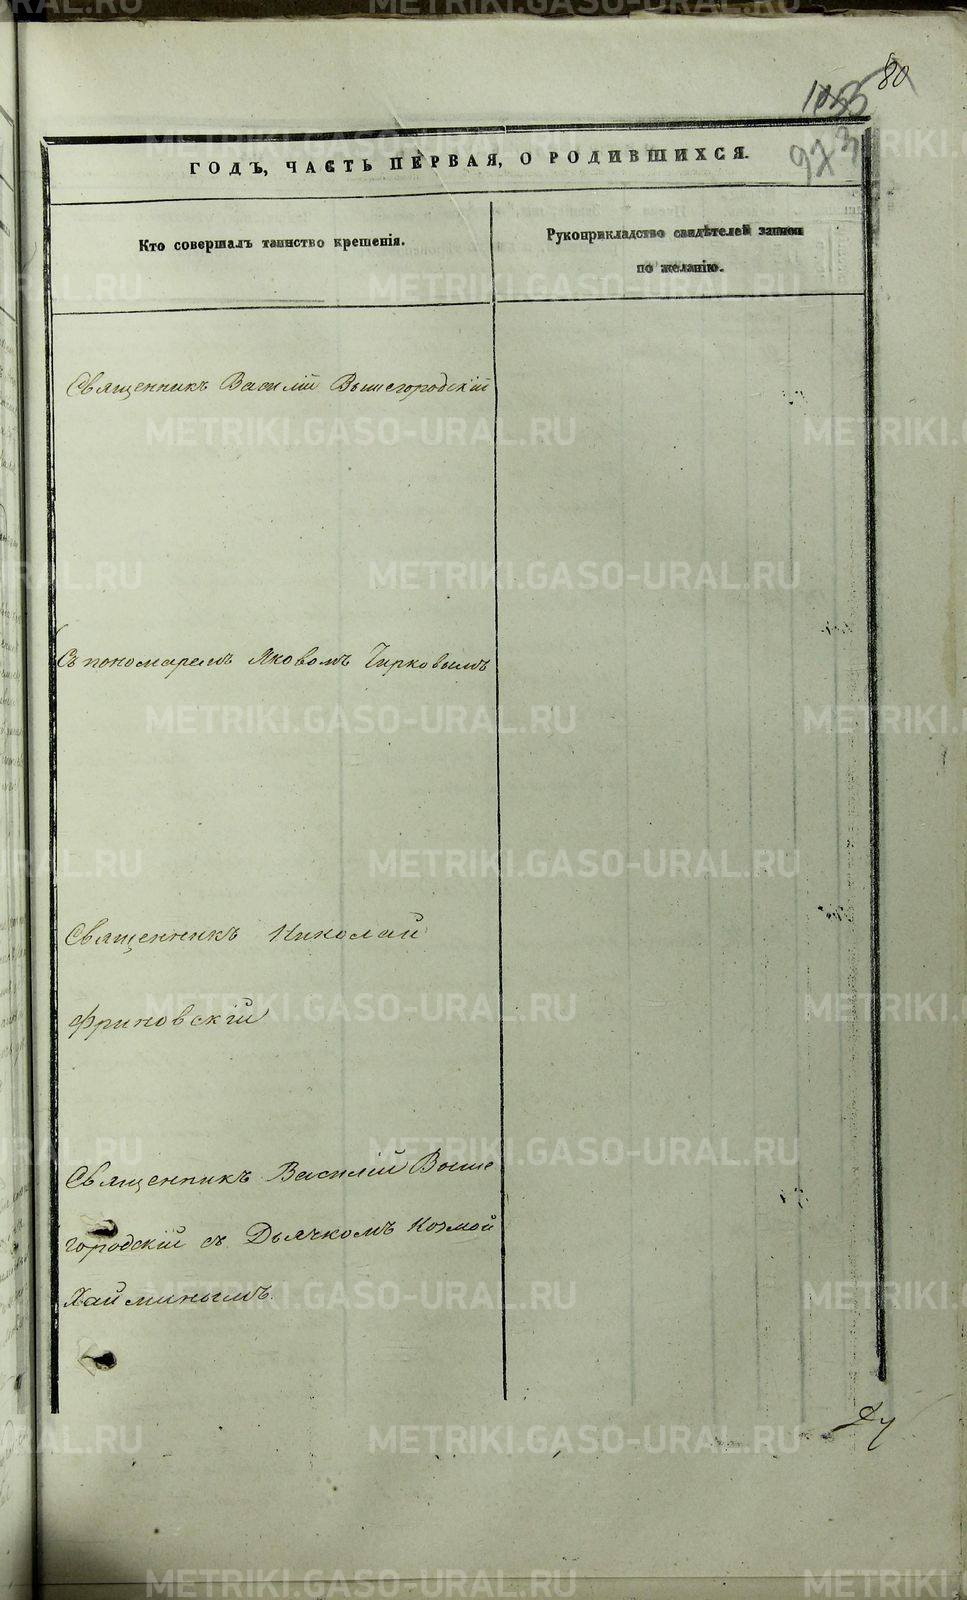 80
1055
973
ГОДЪ, ЧАСТЬ ПЕРВАЯ, О РОДИВШИХСЯ.
Кто совершалъ таинство крещенія.
Рукоприкладство свидѣтелей записи
по желанію.
Священникъ Василій Вышегородскій
Съ пономаремъ Яковомъ Чирковымъ
Священникъ Николай
Фриновскій
Священникъ Василій Выше
городскій съ Дьячкомъ Козмой
Хайминымъ.
METRIKI.GASO-URAL.RU